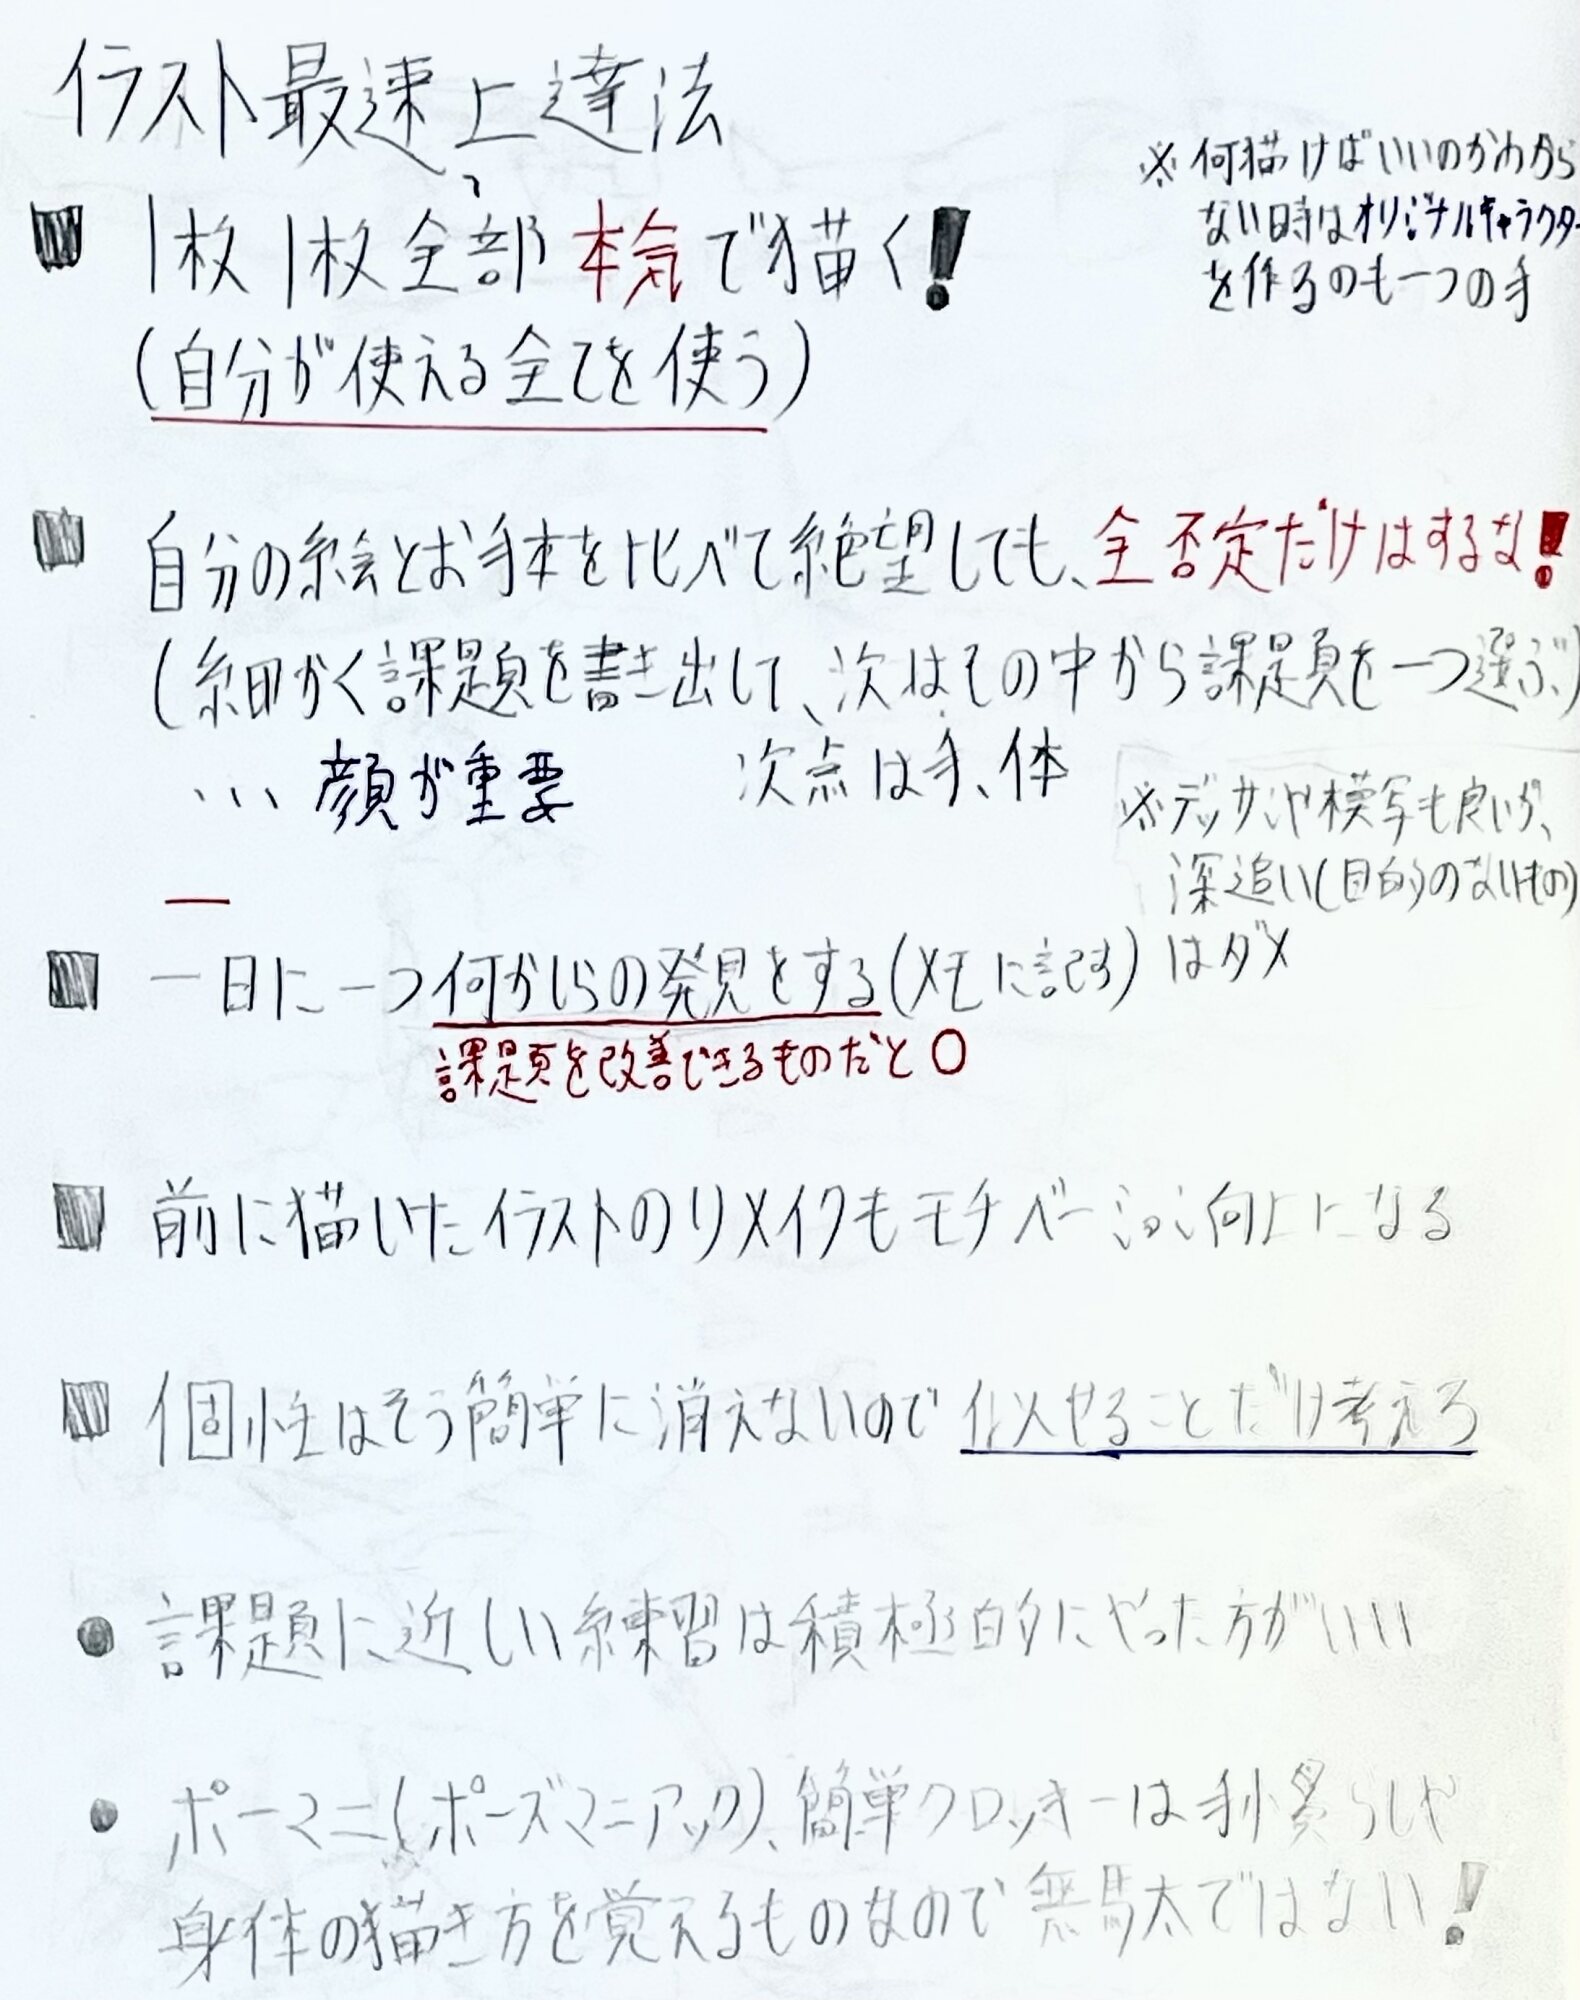 イラスト最速上達法
■ 1枚1枚全部本気で描く!
(自分が使える全てを使う)
※何描けばいいのかわから
ない時はオリジナルキャラクター
を作るのも一つの手
■ 自分の絵とお手本を比べて絶望しても、全否定だけはするな!
(細かく課題を書き出して、次はその中から課題を一つ選ぶ)
... 顔が重要 次点は手、体
※デッサンや模写も良いが、
深追い(目的のないもの)
はダメ
■ 一日に一つ何かしらの発見をする(メモに記す)
課題を改善できるものだと○
■ 前に描いたイラストのリメイクもモチベーション向上になる
■ 個性はそう簡単に消えないので似せることだけ考えろ
● 課題に近しい練習は積極的にやった方がいい
● ポーマニ(ポーズマニアック)、簡単クロッキーは手慣らしや
身体の描き方を覚えるものなので無駄ではない!